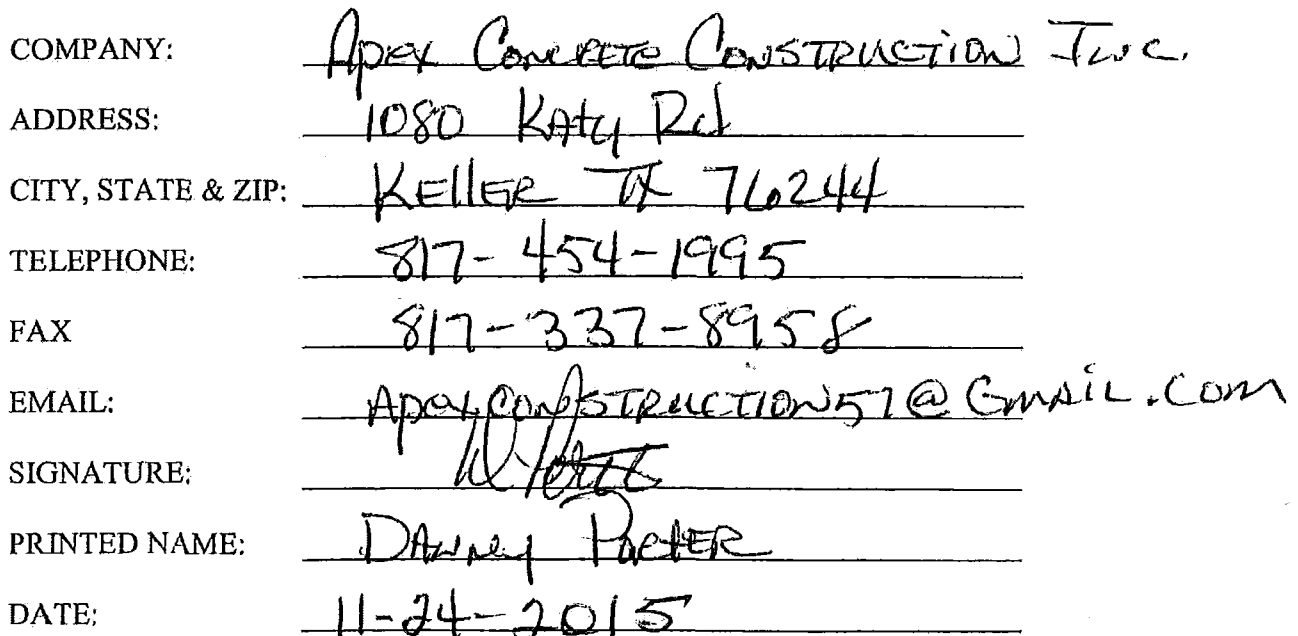 COMPANY: Apex Concrete Construction Inc.
ADDRESS: 1080 Katy Rd
CITY, STATE & ZIP: Keller TX 76244
TELEPHONE: 817-454-1995
FAX 817-337-8958
EMAIL: Apex.Construction57@Gmail.com
SIGNATURE:
PRINTED NAME: Danney Porter
DATE: 11-24-2015